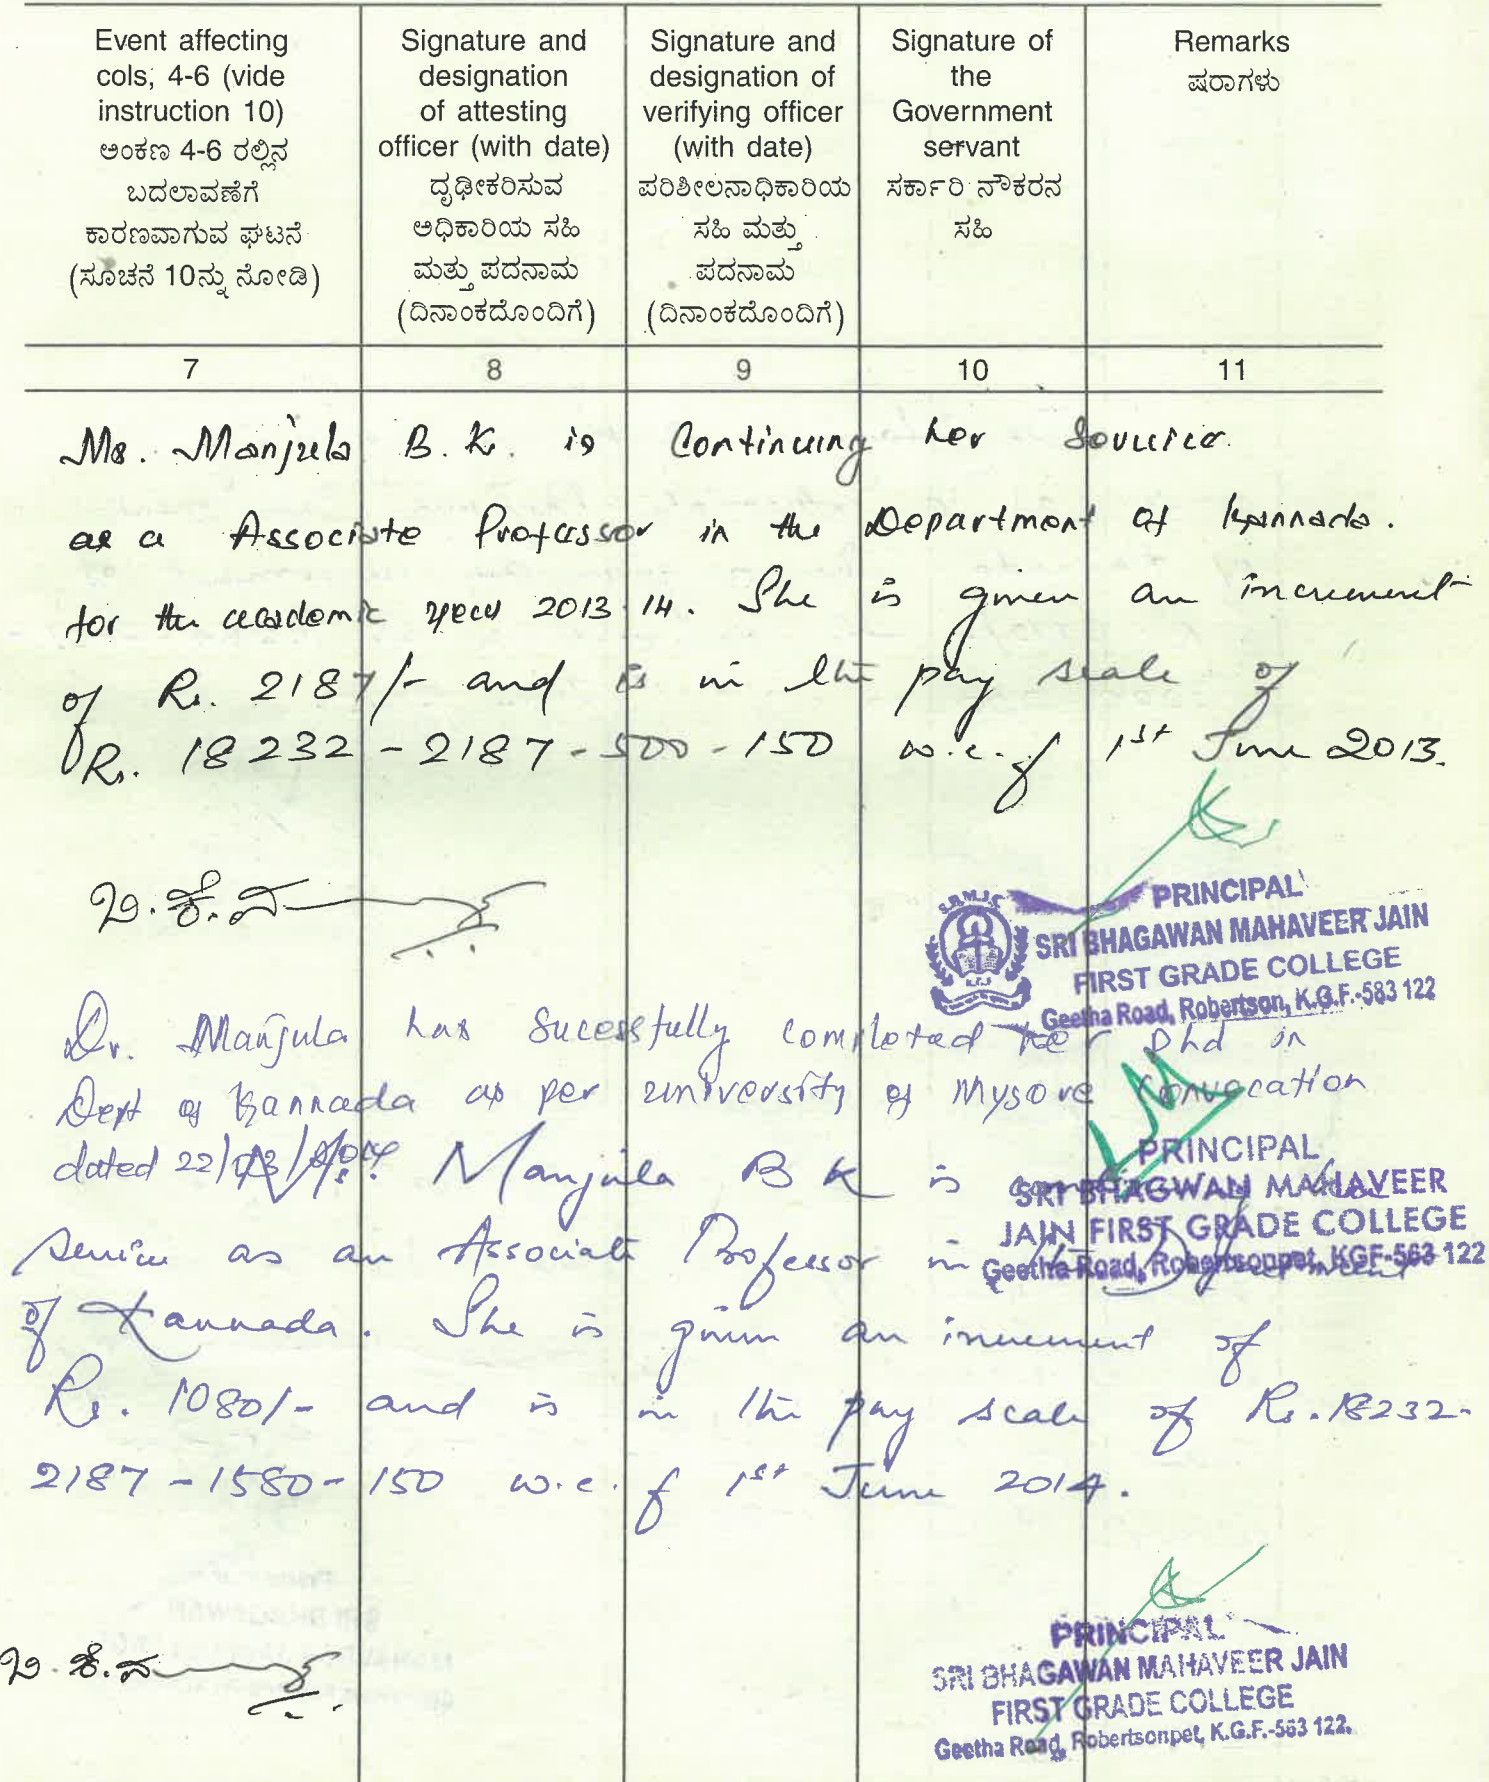 Event affecting cols, 4-6 (vide instruction 10)
ಅಂಕಣ 4-6 ರಲ್ಲಿನ ಬದಲಾವಣೆಗೆ ಕಾರಣವಾಗುವ ಘಟನೆ (ಸೂಚನೆ 10ನ್ನು ನೋಡಿ)
Signature and designation of attesting officer (with date)
ದೃಢೀಕರಿಸುವ ಅಧಿಕಾರಿಯ ಸಹಿ ಮತ್ತು ಪದನಾಮ (ದಿನಾಂಕದೊಂದಿಗೆ)
Signature and designation of verifying officer (with date)
ಪರಿಶೀಲನಾಧಿಕಾರಿಯ ಸಹಿ ಮತ್ತು ಪದನಾಮ (ದಿನಾಂಕದೊಂದಿಗೆ)
Signature of the Government servant
ಸರ್ಕಾರಿ ನೌಕರನ ಸಹಿ
Remarks
ಷರಾಗಳು
7 8 9 10 11
Ms. Manjula B.K. is Continuing her Service
as a Associate Professor in the Department of Kannada.
for the academic year 2013-14. She is given an increment
of Rs. 2187/- and is in the pay scale of
Rs. 18232-2187-500-150 w.e.f 1st June 2013.
ಬಿ.ಕೆ.ಮ
PRINCIPAL
SRI BHAGAWAN MAHAVEER JAIN
FIRST GRADE COLLEGE
Geetha Road, Robertson, K.G.F.-583 122
Dr. Manjula has Sucessfully completed her Phd in
Dept of Kannada as per university of Mysore Convocation
dated 22/03/2014
Ms. Manjula B K is
PRINCIPAL
SRI BHAGWAN MAHAVEER
JAIN FIRST GRADE COLLEGE
Geetha Road, Robertsonpet, KGF-563 122
service as an Associate Professor in the Department
of Kannada. She is given an increment of
Rs. 1080/- and is in the pay scale of Rs. 18232-
2187-1580-150 w.e.f 1st June 2014.
ಬಿ.ಕೆ.ಮ
PRINCIPAL
SRI BHAGAWAN MAHAVEER JAIN
FIRST GRADE COLLEGE
Geetha Road, Robertsonpet, K.G.F.-563 122.